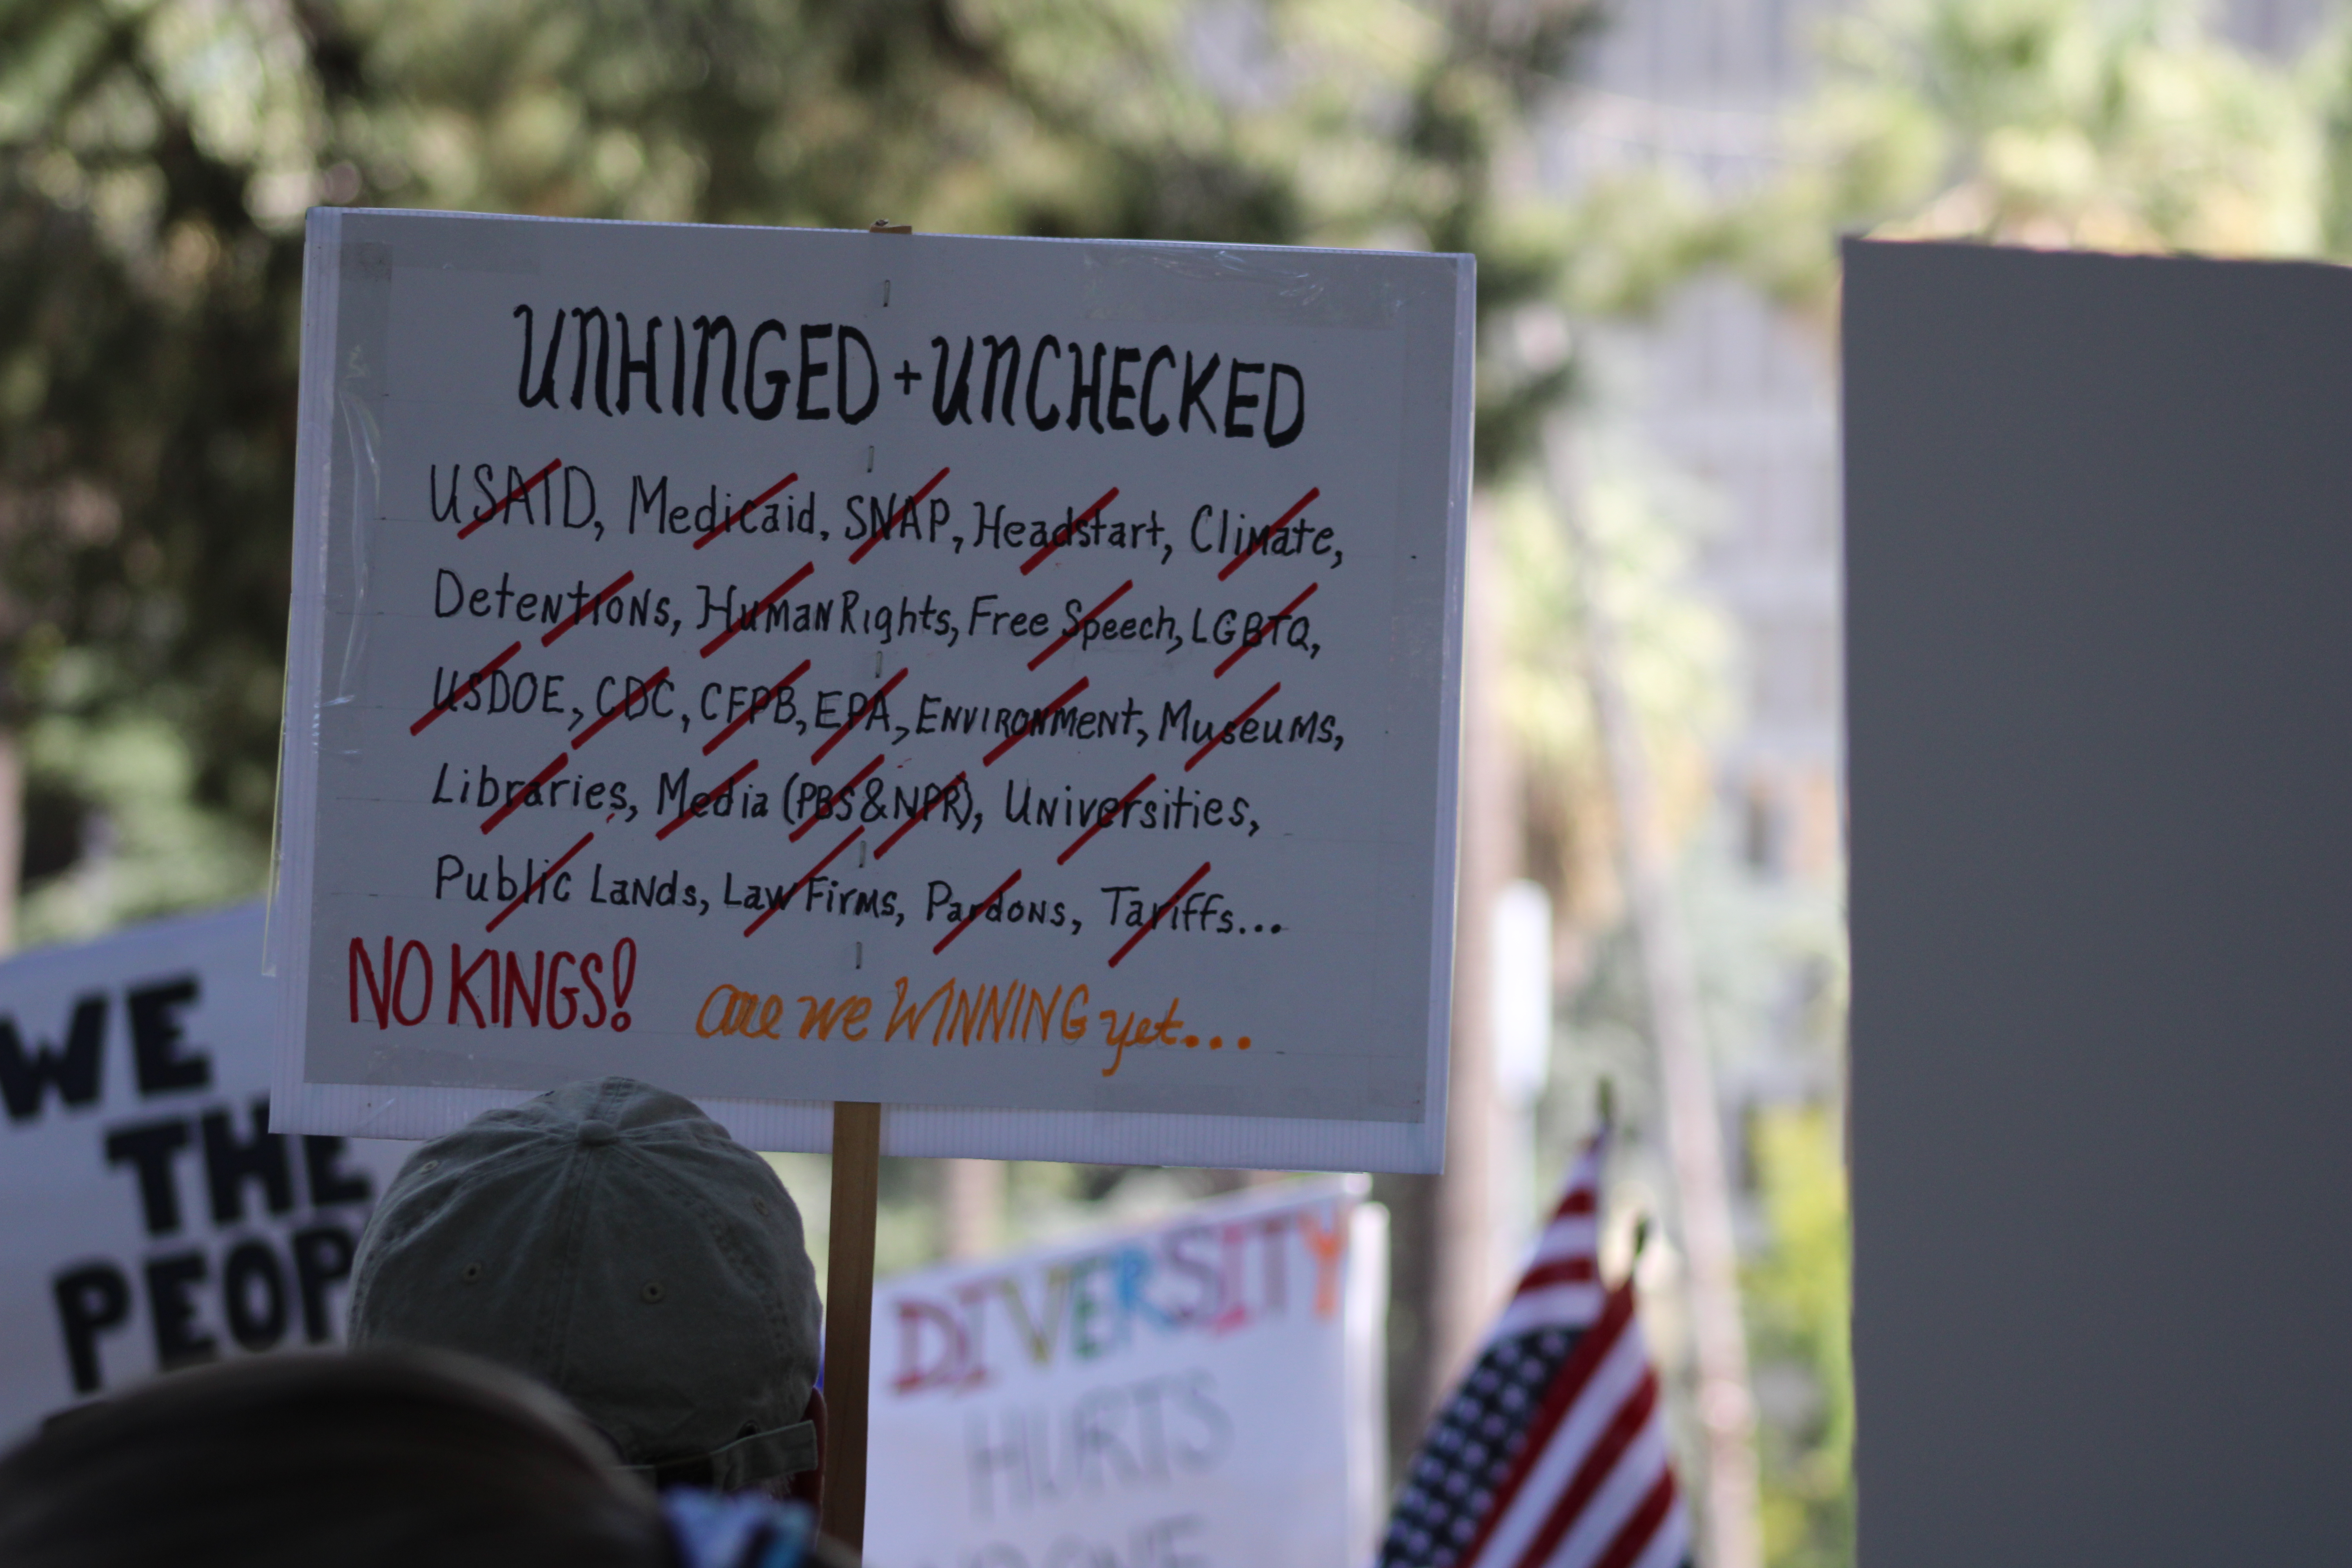 UNHINGED + UNCHECKED
USAID, Medicaid, SNAP, Headstart, Climate,
Detentions, Human Rights, Free Speech, LGBTQ,
USDOE, CDC, CFPB, EPA, Environment, Museums,
Libraries, Media (PBS & NPR), Universities,
Public Lands, Law Firms, Pardons, Tariffs...
NO KINGS! are we WINNING yet...
WE
THE
PEOP
DIVERSITY
HURTS